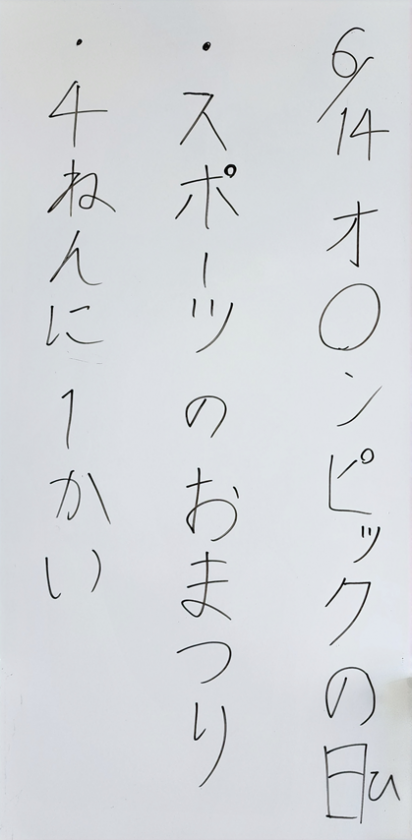 6/14 オ〇ンピックの日ひ
・スポーツのおまつり
・4ねんに1かい